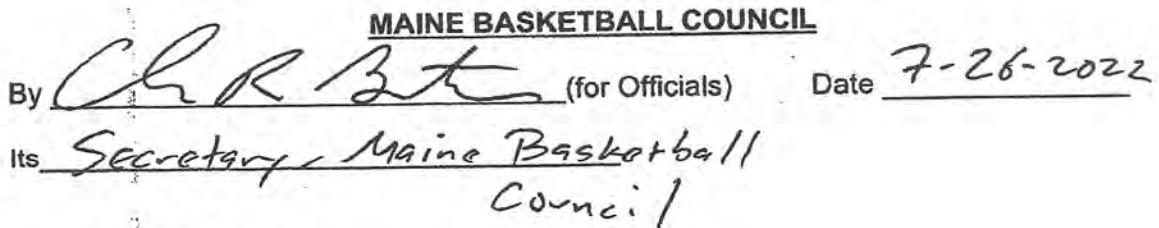 MAINE BASKETBALL COUNCIL
By (for Officials) Date 7-26-2022
Its Secretary, Maine Basketball
Council